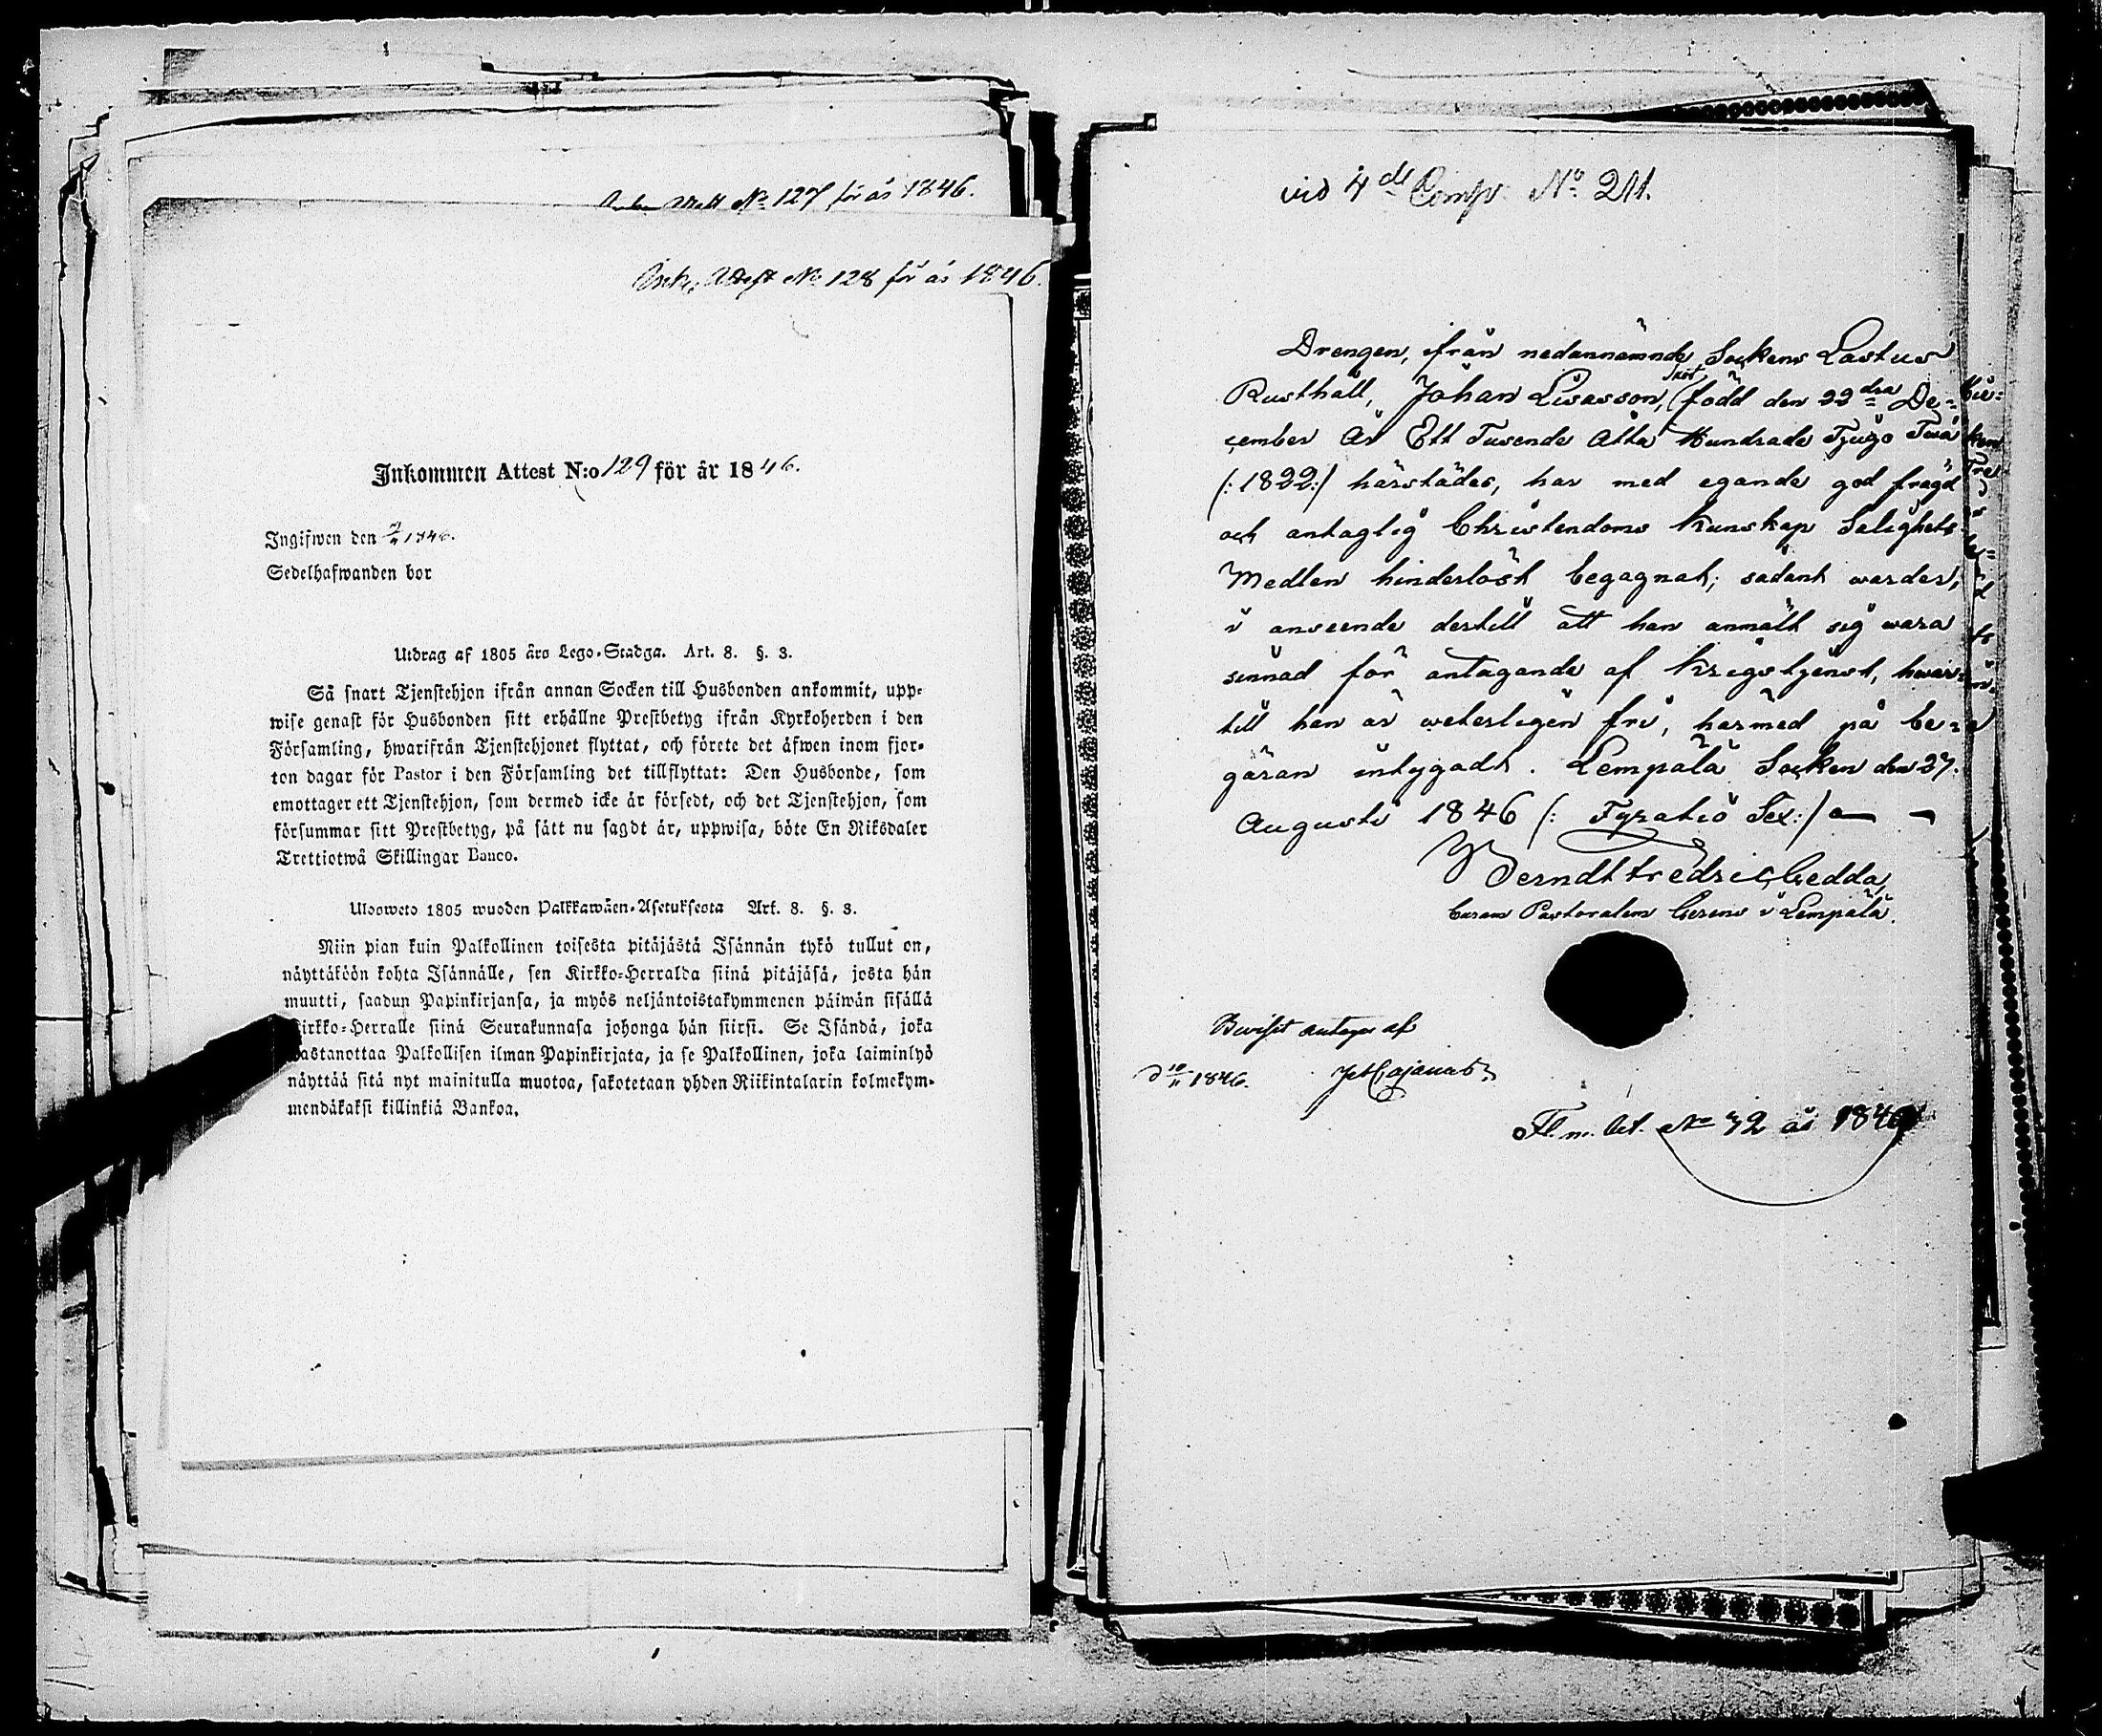 Attest No 127 för år 1846.
Attest No 128 för år 1846.
Inkommen Attest N:o 129 för år 1846.
Ingifwen den 1846.
Sedelhafwanden bor
Utdrag af 1805 års Lego-Stadga. Art. 8. §. 3.
Så snart Tjenstehjon ifrån annan Socken till Husbonden ankommit, upp-
wise genast för Husbonden sitt erhållne Prestbetyg ifrån Kyrkoherden i den
Församling, hwarifrån Tjenstehjonet flyttat, och förete det äfwen inom fjor-
ton dagar för Pastor i den Församling det tillflyttat: Den Husbonde, som
emottager ett Tjenstehjon, som dermed icke är försedt, och det Tjenstehjon, som
försummar sitt Prestbetyg, på sätt nu sagdt är, uppwisa, böte En Riksdaler
Trettiotwå Skillingar Banco.
Ulosweto 1805 wuoden Palkkawäen-Asetuksesta Art. 8. §. 3.
Niin pian kuin Palkollinen toisesta pitäjästä Isännän tykö tullut on,
näyttäköön kohta Isännälle, sen Kirkko-Herralda siinä pitäjäsä, josta hän
muutti, saadun Papinkirjansa, ja myös neljäntoistakymmenen päiwän sisällä
irkko-Herralle siinä Seurakunnasa johonga hän siirsi. Se Isändä, joka
astanottaa Palkollisen ilman Papinkirjata, ja se Palkollinen, joka laiminlyö
näyttää sitä nyt mainitulla muotoa, sakotetaan yhden Riikintalarin kolmekym-
mendäkaksi killinkiä Bankoa.
vid 4de Comp. No 211.
Drengen, ifrån nedannämnde Sockens Lastus
Rusthåll, Johan Lisasson, född den 22dra De-
cember År Ett Tusende Åtta Hundrade Tjugo Twå
(:1822:) härstädes, har med egande god frägd
och antaglig Christendoms Kunskap Salighets
Medlen hinderlöst begagnat; sådant warder,
i anseende dertill att han anmält sig wara
sinnad för antagande af Krigstjenst, hwar-
till han är weterligen fri, härmed på be-
gäran intygadt. Lempälä Socken den 27.
Augusti 1846 (: Fyratio Sex:)
Berndt Fredric Gedda,
Curam Pastoralem Gerens i Lempälä.
Bewiset antages af
d 10/11 1846. Cajanus
Fl. m. bet. No 42 år 1846